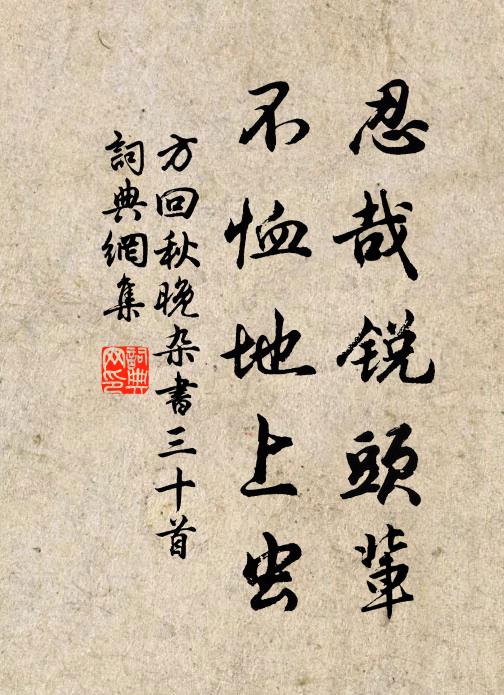 忍哉銳頭輩
不恤地上虫
方回秋晚杂書三十首
詞典網集
詞典网印